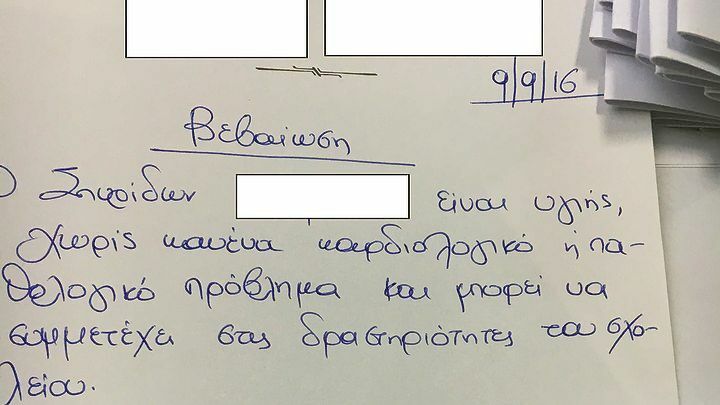 9/9/16
Βεβαίωση
Ο Σπυρίδων είναι υγιής,
χωρίς κανένα καρδιολογικό ή πα-
θολογικό πρόβλημα και μπορεί να
συμμετέχει στις δραστηριότητες του σχο-
λείου.